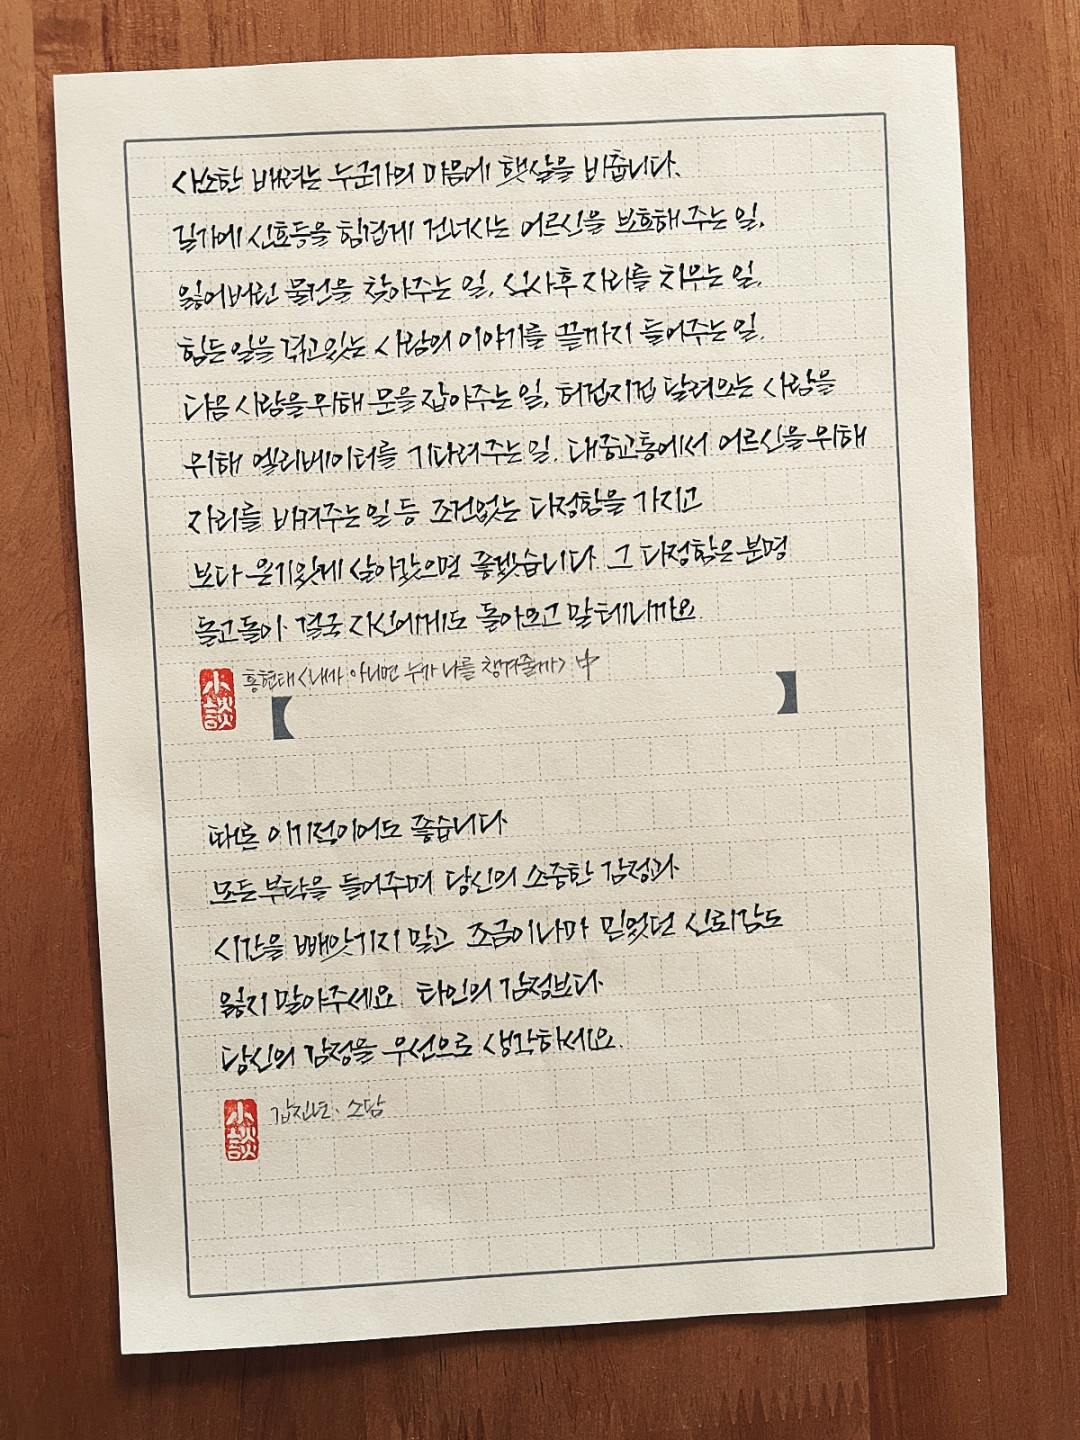 사소한 배려는 누군가의 마음에 햇살을 비춥니다.
길가에 신호등을 힘겹게 건너시는 어르신을 보호해주는 일,
잃어버린 물건을 찾아주는 일, 식사후 자리를 치우는 일,
힘든일을 겪고있는 사람의 이야기를 끝까지 들어주는 일,
다음 사람을 위해 문을 잡아주는 일, 허겁지겁 달려오는 사람을
위해 엘리베이터를 기다려주는 일, 대중교통에서 어르신을 위해
자리를 비켜주는 일 등 조건없는 다정함을 가지고
보다 온기있게 살아갔으면 좋겠습니다. 그 다정함은 분명
돌고돌아 결국 자신에게도 돌아오고 말테니까요.
小談 홍현태 <내가 아니면 누가 나를 챙겨줄까> 中
때론 이기적이어도 좋습니다
모든 부탁을 들어주며 당신의 소중한 감정과
시간을 빼앗기지 말고 조금이나마 믿었던 신뢰감도
잃지 말아주세요. 타인의 감정보다
당신의 감정을 우선으로 생각하세요.
小談 갑진년. 소담